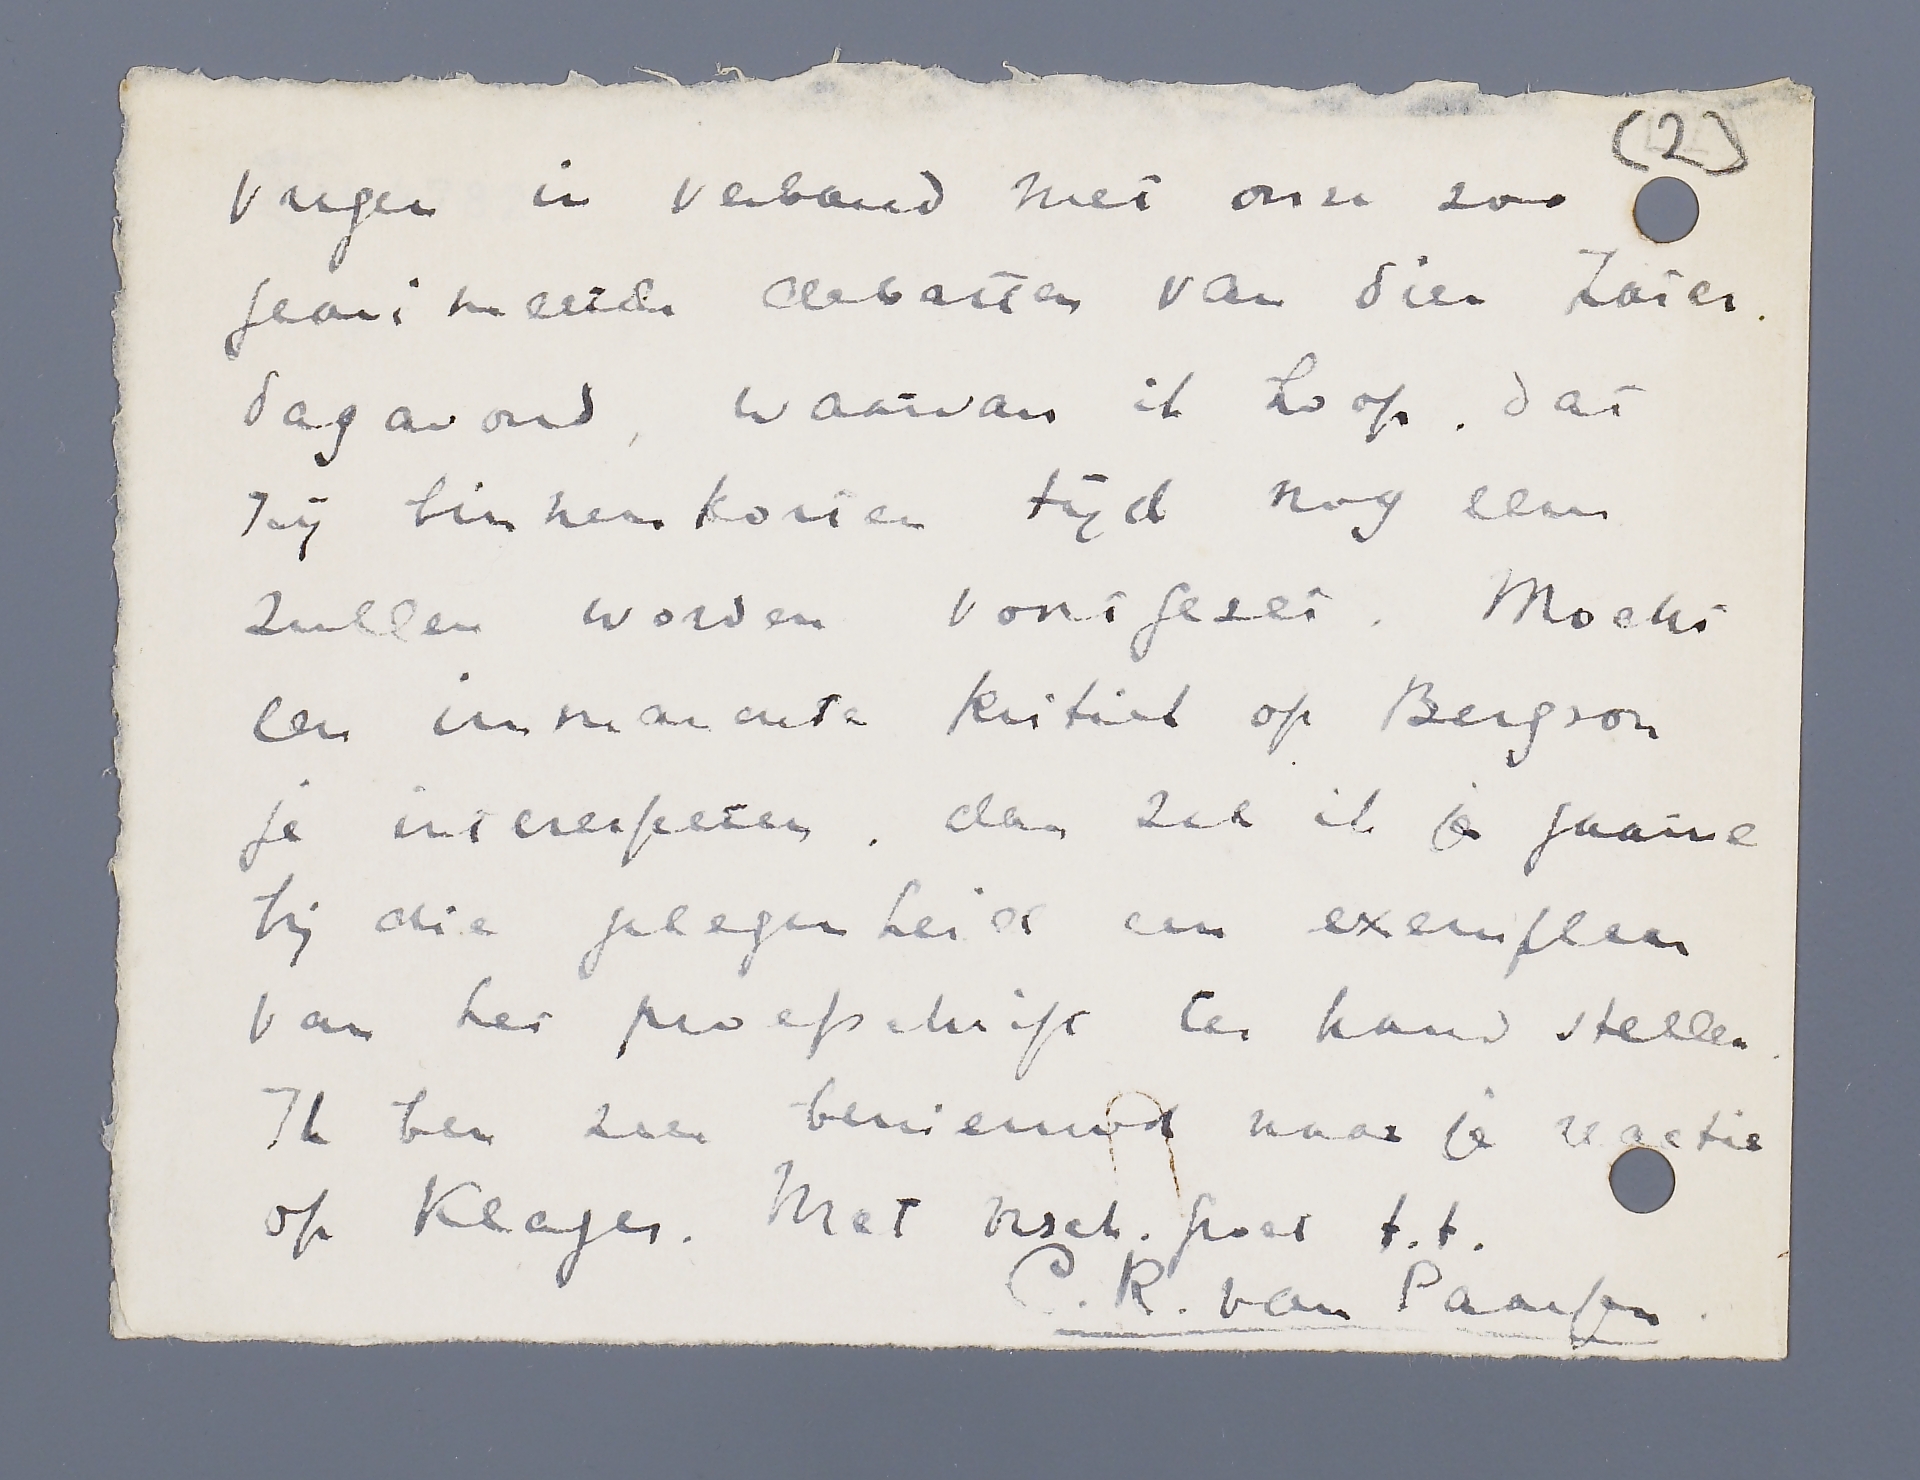 (2)
vragen in verband met onze zoo
geanimeerde debatten van dien Zater.
dagavond, waarvan ik hoop, dat
zij binnenkorten tijd nog eens
zullen worden voortgezet. Mocht
een immanente kritiek op Bergson
je interesseeren, dan zal ik je gaarne
bij die gelegenheid een exemplaar
van het proefschrift ter hand stellen.
Ik ben zeer benieuwd naar je reactie
op Klages. Met vrsch. groet t.t.
C. R. van Paassen.